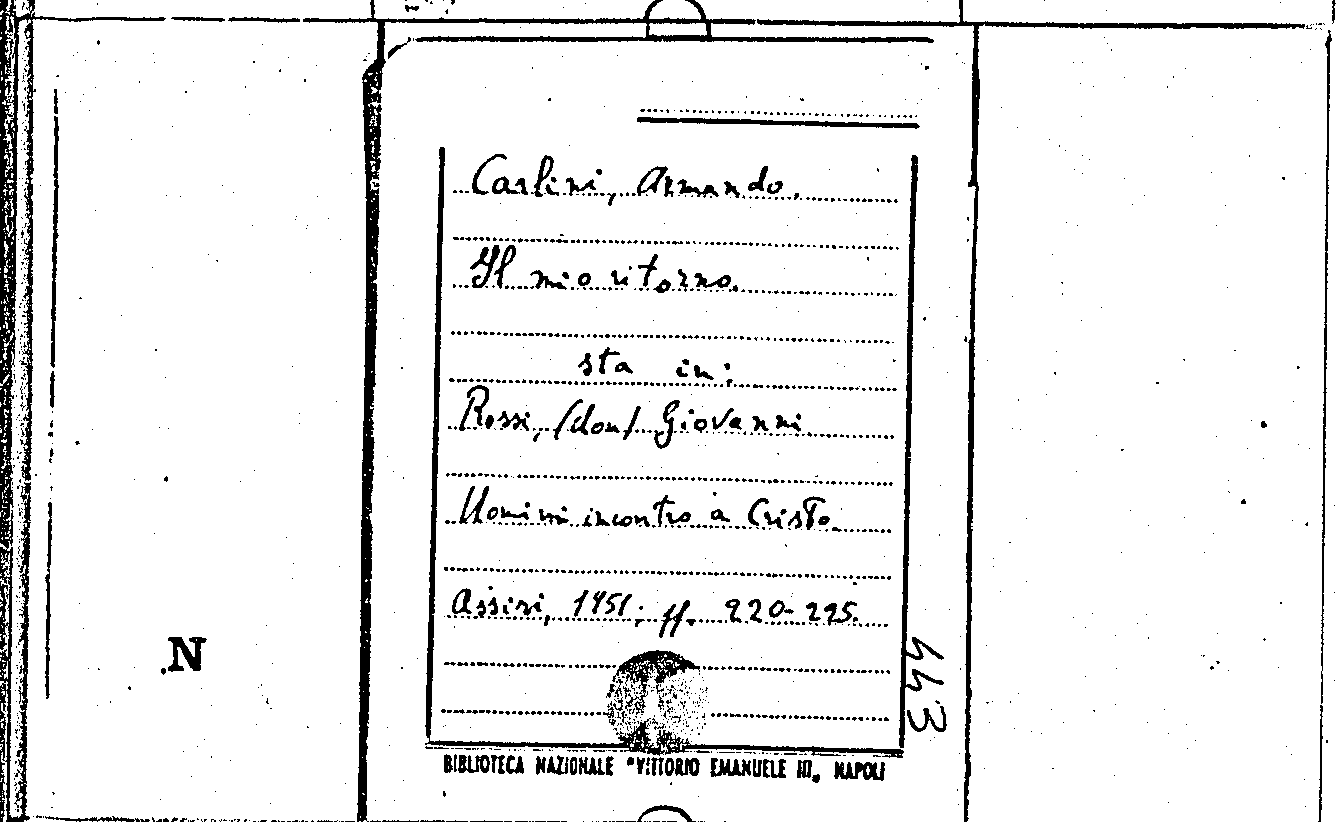 Carlini, Armando.
Il mio ritorno.
sta in:
Rossi, (don) Giovanni
Uomini incontro a Cristo.
Assisi, 1951; ff. 220-225.
443
.N
BIBLIOTECA NAZIONALE "VITTORIO EMANUELE III„ NAPOLI